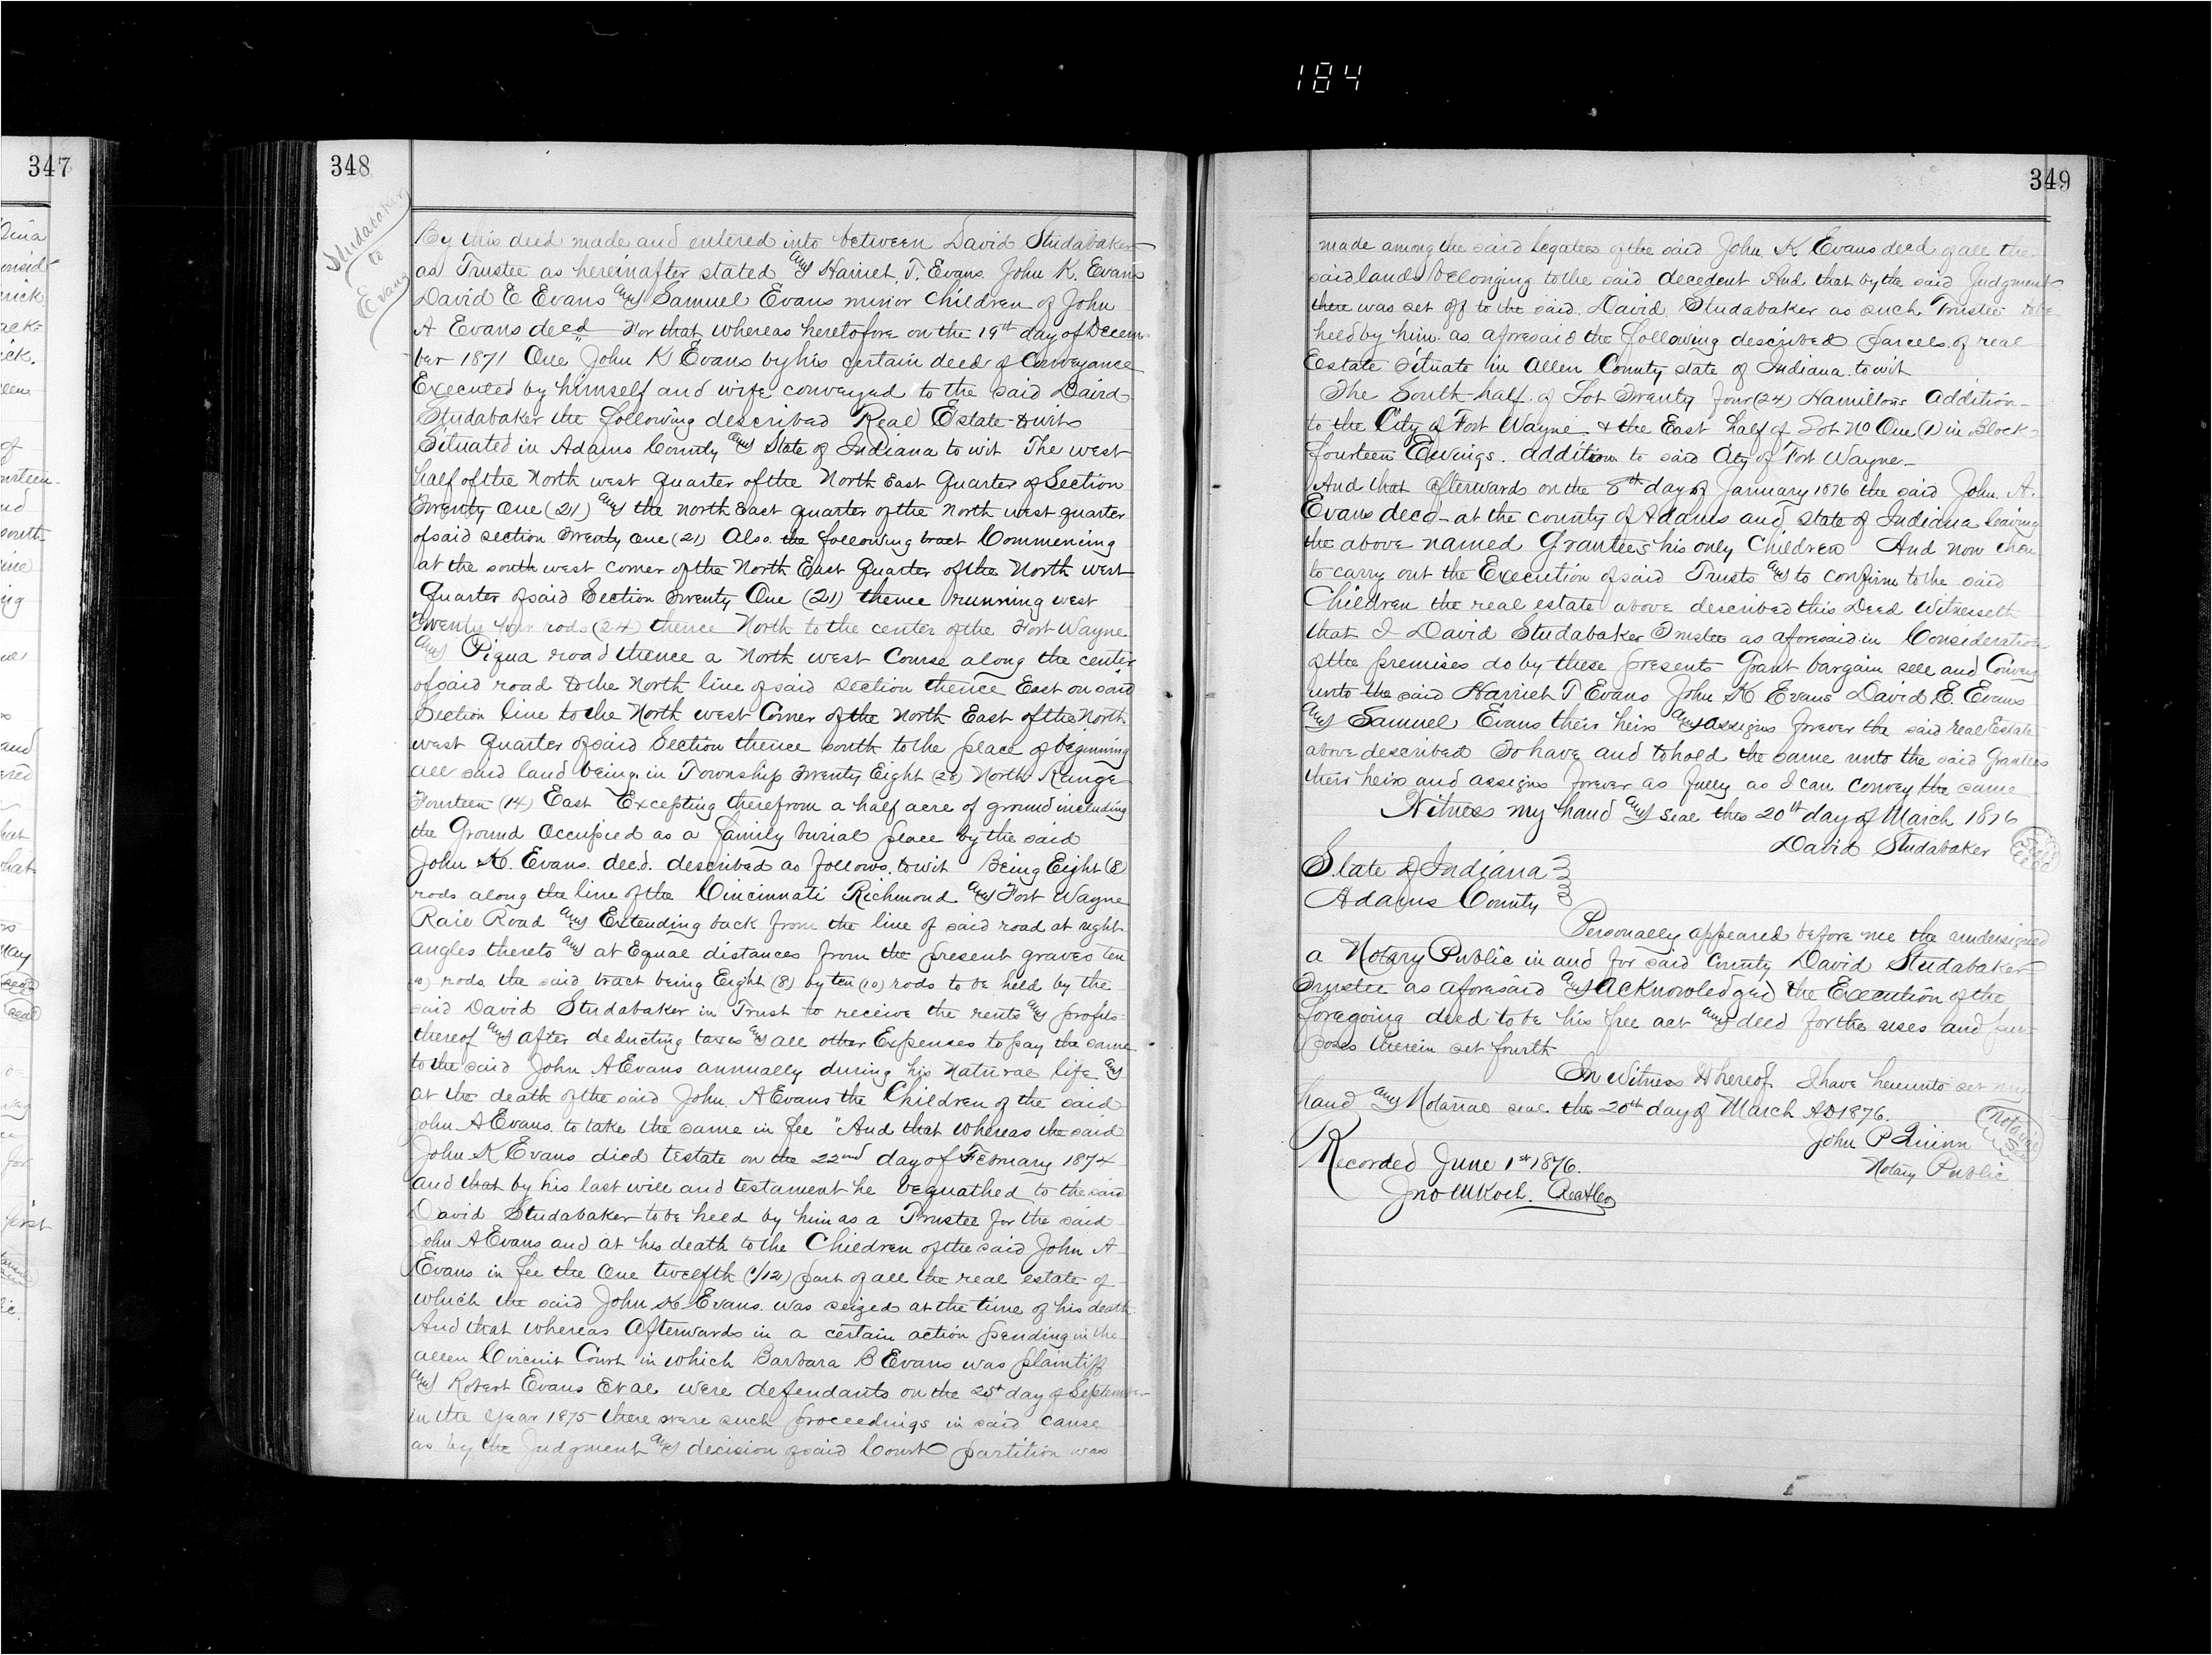 184
347
348
Studabaker
to
Evans
By this deed made and entered into between David Studabaker
as Trustee as hereinafter stated and Harriet T. Evans. John K. Evans
David E Evans and Samuel Evans minor children of John
A Evans decd For that whereas heretofore on the 19th day of Decem
ber 1871 One John K Evans by his certain deed of Conveyance
Executed by himself and wife conveyed to the said David
Studabaker the following described Real Estate towit
Situated in Adams County and State of Indiana to wit The west
half of the North west quarter of the North East Quarter of Section
Twenty One (21) and the north East quarter of the North west quarter
of said section Twenty One (21) Also the following tract Commencing
at the south west corner of the North East Quarter of the North west
Quarter of said Section Twenty One (21) thence running west
Twenty four rods (24) thence North to the center of the Fort Wayne
and Piqua road thence a North west Course along the center
of said road to the North line of said section thence East on said
Section line to the North west Corner of the North East of the North
west quarter of said Section thence south to the place of beginning
all said land being in Township Twenty Eight (28) North Range
Fourteen (14) East Excepting therefrom a half acre of ground including
the Ground Occupied as a family burial place by the said
John K. Evans. decd. described as follows. towit Being Eight (8)
rods along the line of the Cincinnati Richmond and Fort Wayne
Rail Road and Extending back from the line of said road at right
angles thereto and at Equal distances from the present graves ten
(10) rods. the said tract being Eight (8) by ten (10) rods to be held by the
said David Studabaker in Trust to receive the rents and profits
thereof and after deducting taxes and all other Expenses to pay the same
to the said John A Evans annually during his Natural life and
at the death of the said John A Evans the Children of the said
John A Evans. to take the same in fee "And that whereas the said
John K Evans died testate on the 22nd day of February 1874
and that by his last will and testament he bequathed to the said
David Studabaker to be held by him as a Trustee for the said
John A Evans and at his death to the Children of the said John A
Evans in fee the One twelfth (1/12) part of all the real estate of
which the said John K Evans. was seized at the time of his death
And that whereas Afterwards in a certain action pending in the
allen Circuit Court in which Barbara B Evans was plaintiff
and Robert Evans Et al were defendants on the 25t day of September
in the Year 1875 there were such proceedings in said cause
as by the Judgment and decision of said Court partition was
349
made among the said legatees of the said John K Evans decd of all the
said lands belonging to the said decedent And that by the said Judgment
there was set off to the said David Studabaker as such Trustee to be
held by him as aforesaid the following described parcels of real
Estate situate in Allen County state of Indiana. towit
The South half of Lot Twenty four (24) Hamiltons Addition
to the City of Fort Wayne & the East half of Lot No One (1) in Block
fourteen Ewings. addition to said City of Fort Wayne
And that afterwards on the 8th day of January 1876 the said John. A.
Evans decd at the county of Adams and State of Indiana leaving
the above named Grantees his only Children And now then
to carry out the Execution of said Trusts and to confirm to the said
Children the real estate above described this Deed Witnesseth
that I David Studabaker Trustee as aforesaid in Consideration
of the premises do by these presents Grant bargain sell and Convey
unto the said Harriet T Evans John K Evans David E. Evans
and Samuel Evans their heirs and assigns forever the said real Estate
above described To have and to hold the same unto the said Grantees
their heirs and assigns forever as fully as I can convey the same
Witness my hand and seal this 20th day of March 1876
David Studabaker
State of Indiana
Adams County
Personally appeared before me the undersigned
a Notary Public in and for said County David Studabaker
Trustee as aforesaid and acknowledged the Execution of the
foregoing deed to be his free act and deed for the uses and pur
poses therein set fourth
In Witness Whereof I have hereunto set my
hand and Notarial seal this 20th day of March AD 1876.
John P Quinn
Notarial
Seal
Notary Public
Recorded June 1st 1876.
Jno M Koch.